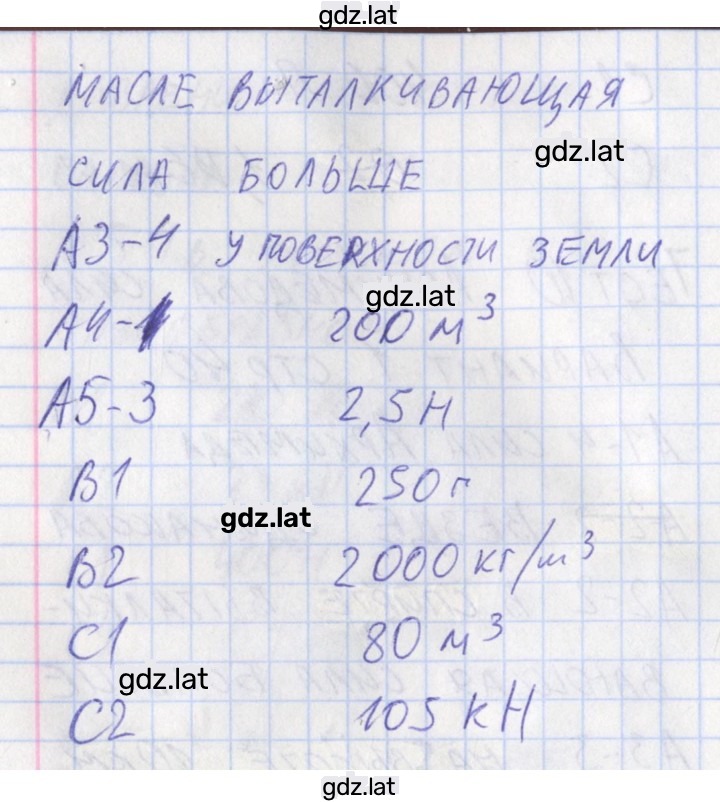 gdz.lat
МАСЛЕ ВЫТАЛКИВАЮЩАЯ
gdz.lat
СИЛА БОЛЬШЕ
А3-4 У ПОВЕРХНОСТИ ЗЕМЛИ
gdz.lat
А4-1 200 м³
А5-3 2,5 Н
В1 250 г
gdz.lat
В2 2000 кг/m³
С1 80 м³
gdz.lat
С2 105 кН
gdz.lat